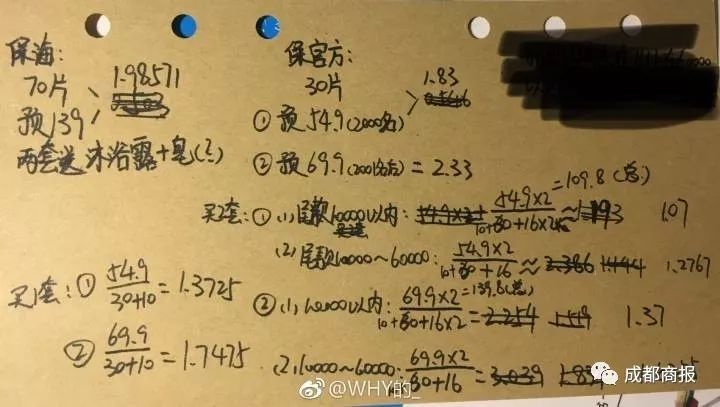 保海:
70片 1.98571
预139
两套送沐浴露+皂(?)
保官方:
30片 1.83
① 预54.9(2000名)
② 预69.9(200名后)=2.33
买2套: ① (1)尾款10000以内: 54.9×2/10+30+16×2≈ 1.07
=109.8(总)
(2)尾款10000~60000: 54.9×2/10+30+16≈ 1.2767
买1套: ① 54.9/30+10=1.3725
② 69.9/30+10=1.7475
② (1)10000以内: 69.9×2/10+30+16×2= 1.37
=139.8(总)
(2)10000~60000: 69.9×2/30+16=
@WHY的_
成都商报